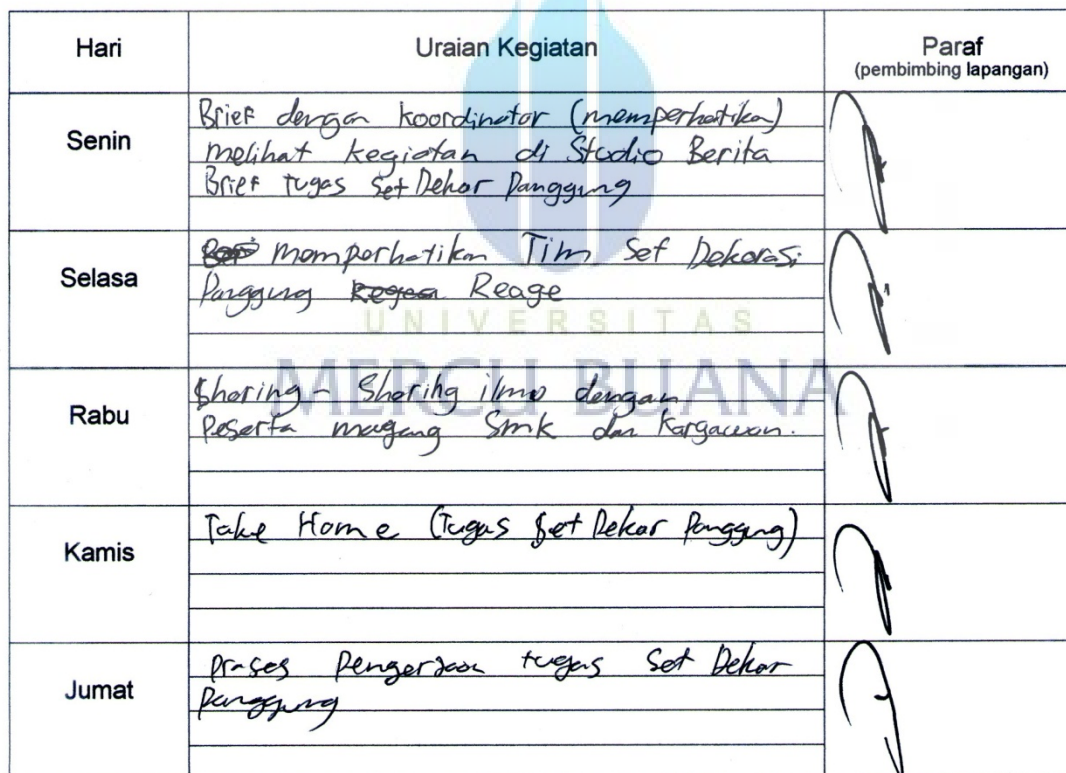 Hari
Uraian Kegiatan
Paraf
(pembimbing lapangan)
Senin
Brief dengan koordinator (memperhatikan)
melihat kegiatan di Studio Berita
Brief tugas Set Dekor Panggung
Selasa
memperhatikan Tim Set Dekorasi
Panggung Reage
Rabu
Sharing - Sharing ilmu dengan
Peserta magang Smk dan Karyawan.
Kamis
Take Home (Tugas Set Dekor Panggung)
Jumat
Proses Pengerjaan tugas Set Dekor
Panggung
UNIVERSITAS
MERCU BUANA